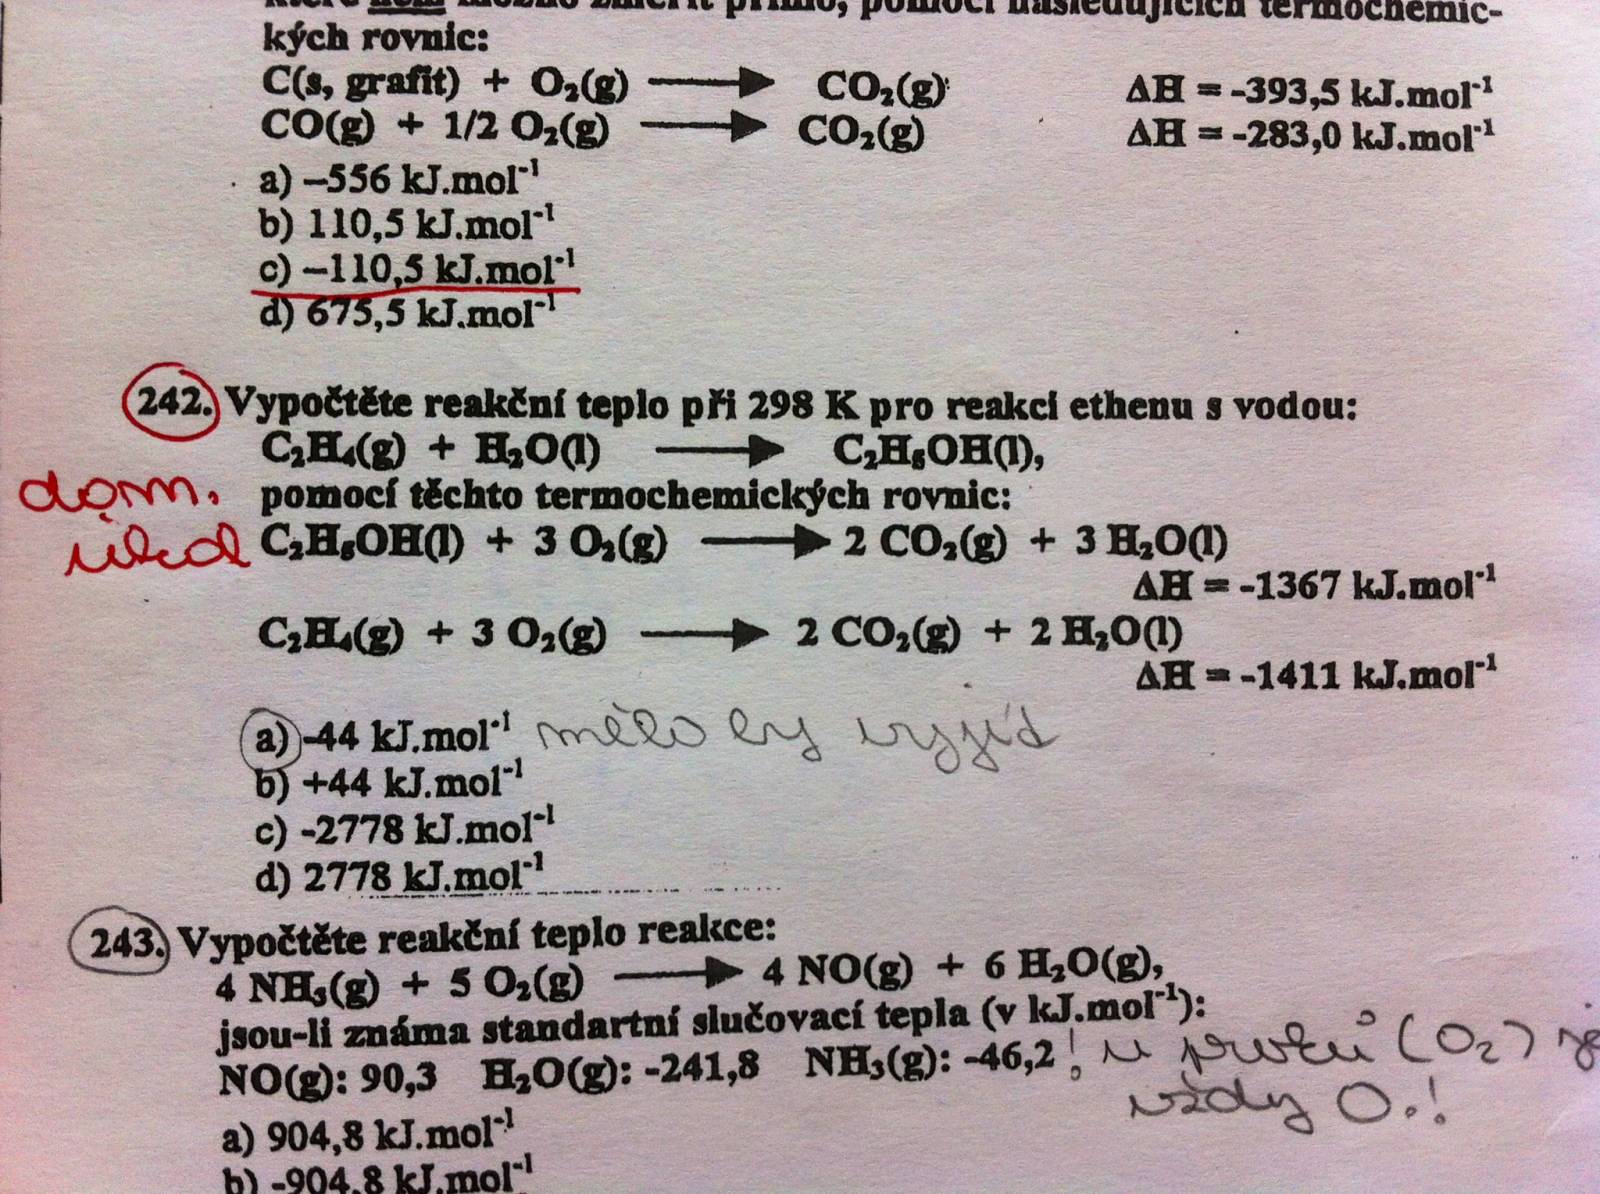 které není možno změřit přímo, pomocí následujících termochemic-
kých rovnic:
C(s, grafit) + O₂(g) ⟶ CO₂(g) ΔH = -393,5 kJ.mol⁻¹
CO(g) + 1/2 O₂(g) ⟶ CO₂(g) ΔH = -283,0 kJ.mol⁻¹
a) –556 kJ.mol⁻¹
b) 110,5 kJ.mol⁻¹
c) –110,5 kJ.mol⁻¹
d) 675,5 kJ.mol⁻¹
242. Vypočtěte reakční teplo při 298 K pro reakci ethenu s vodou:
C₂H₄(g) + H₂O(l) ⟶ C₂H₅OH(l),
dom. pomocí těchto termochemických rovnic:
úkol C₂H₅OH(l) + 3 O₂(g) ⟶ 2 CO₂(g) + 3 H₂O(l)
ΔH = -1367 kJ.mol⁻¹
C₂H₄(g) + 3 O₂(g) ⟶ 2 CO₂(g) + 2 H₂O(l)
ΔH = -1411 kJ.mol⁻¹
a) -44 kJ.mol⁻¹ mělo by vyjít
b) +44 kJ.mol⁻¹
c) -2778 kJ.mol⁻¹
d) 2778 kJ.mol⁻¹
243. Vypočtěte reakční teplo reakce:
4 NH₃(g) + 5 O₂(g) ⟶ 4 NO(g) + 6 H₂O(g),
jsou-li známa standartní slučovací tepla (v kJ.mol⁻¹):
NO(g): 90,3 H₂O(g): -241,8 NH₃(g): -46,2 ! u prvků (O₂) je
vždy O.!
a) 904,8 kJ.mol⁻¹
b) -904,8 kJ.mol⁻¹